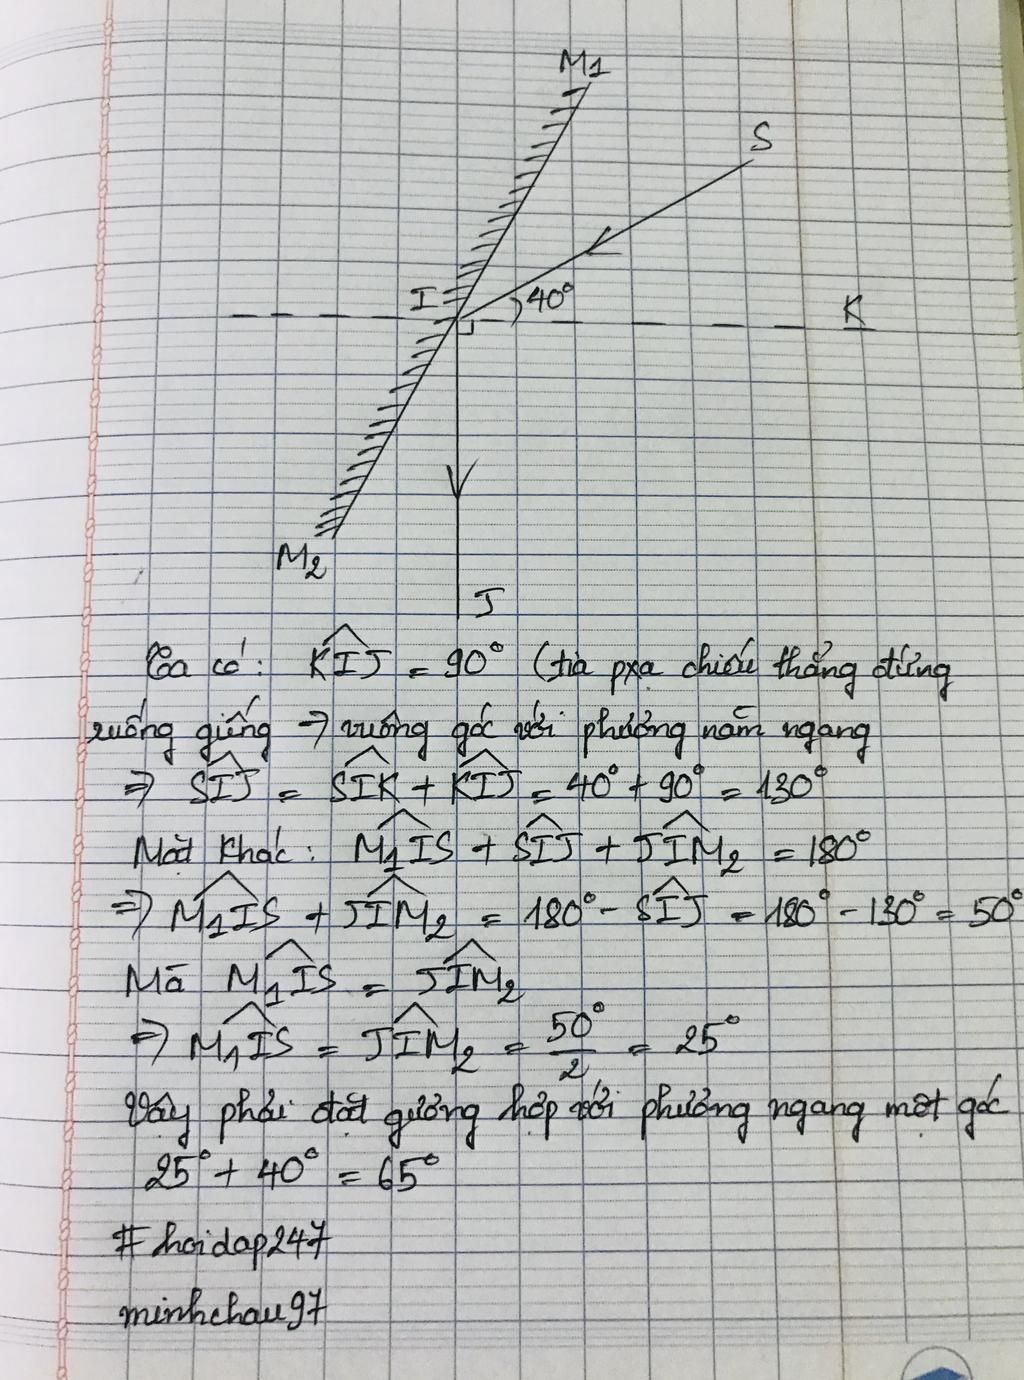 M1
S
I
40°
K
M2
J
Ta có: KIJ = 90° (tia pxạ chiếu thẳng đứng
xuống giếng → vuông góc với phương nằm ngang
⇒ SIJ = SIK + KIJ = 40° + 90° = 130°
Mặt khác: M1IS + SIJ + JIM2 = 180°
⇒ M1IS + JIM2 = 180° - SIJ = 180° - 130° = 50°
Mà M1IS = JIM2
⇒ M1IS = JIM2 = 50°/2 = 25°
Vậy phải đặt gương hợp với phương ngang một góc
25° + 40° = 65°
#hoidap247
minhchau97